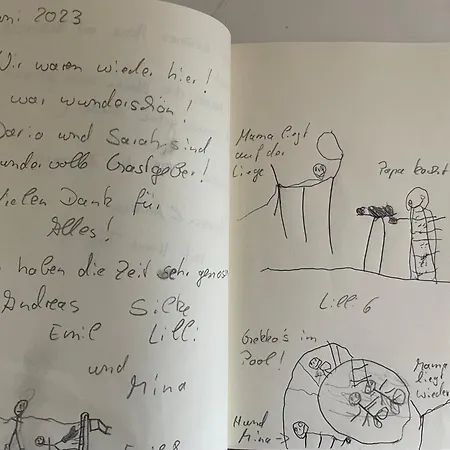 uni 2023
Wir waren wieder hier!
war wunderschön!
Dario und Sarah sind
wundervolle Gastgeber!
Vielen Dank für
Alles!
haben die Zeit sehr genos
Andreas Silke
Emil Lilli
und
Mina
Mama liegt
auf der
Liege
Papa kocht
Lilli 6
Gekko's im
Pool!
Mama
liegt
wieder
Hund
Mina